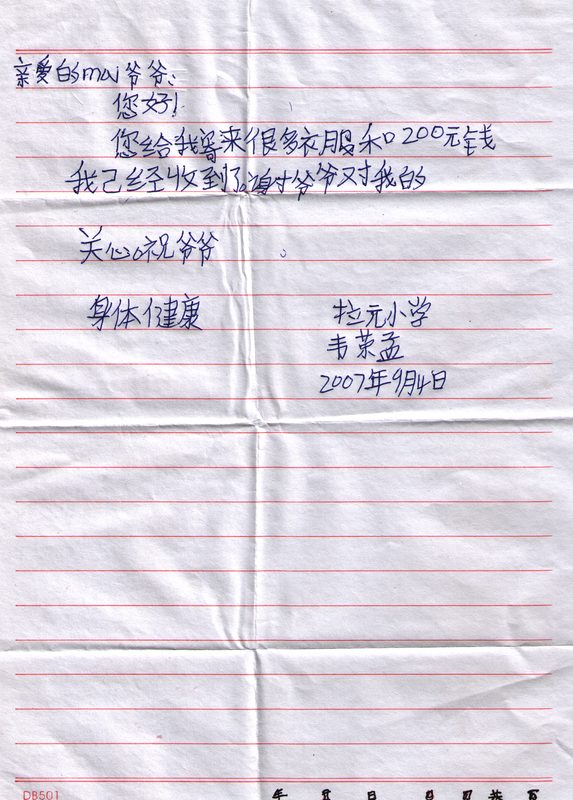 亲爱的mai爷爷：
您好！
您给我寄来很多衣服和200元钱
我己经收到了。谢谢爷爷对我的
关心。祝爷爷
身体健康
拉元小学
韦荣孟
2007年9月4日
DB501
年 月 日